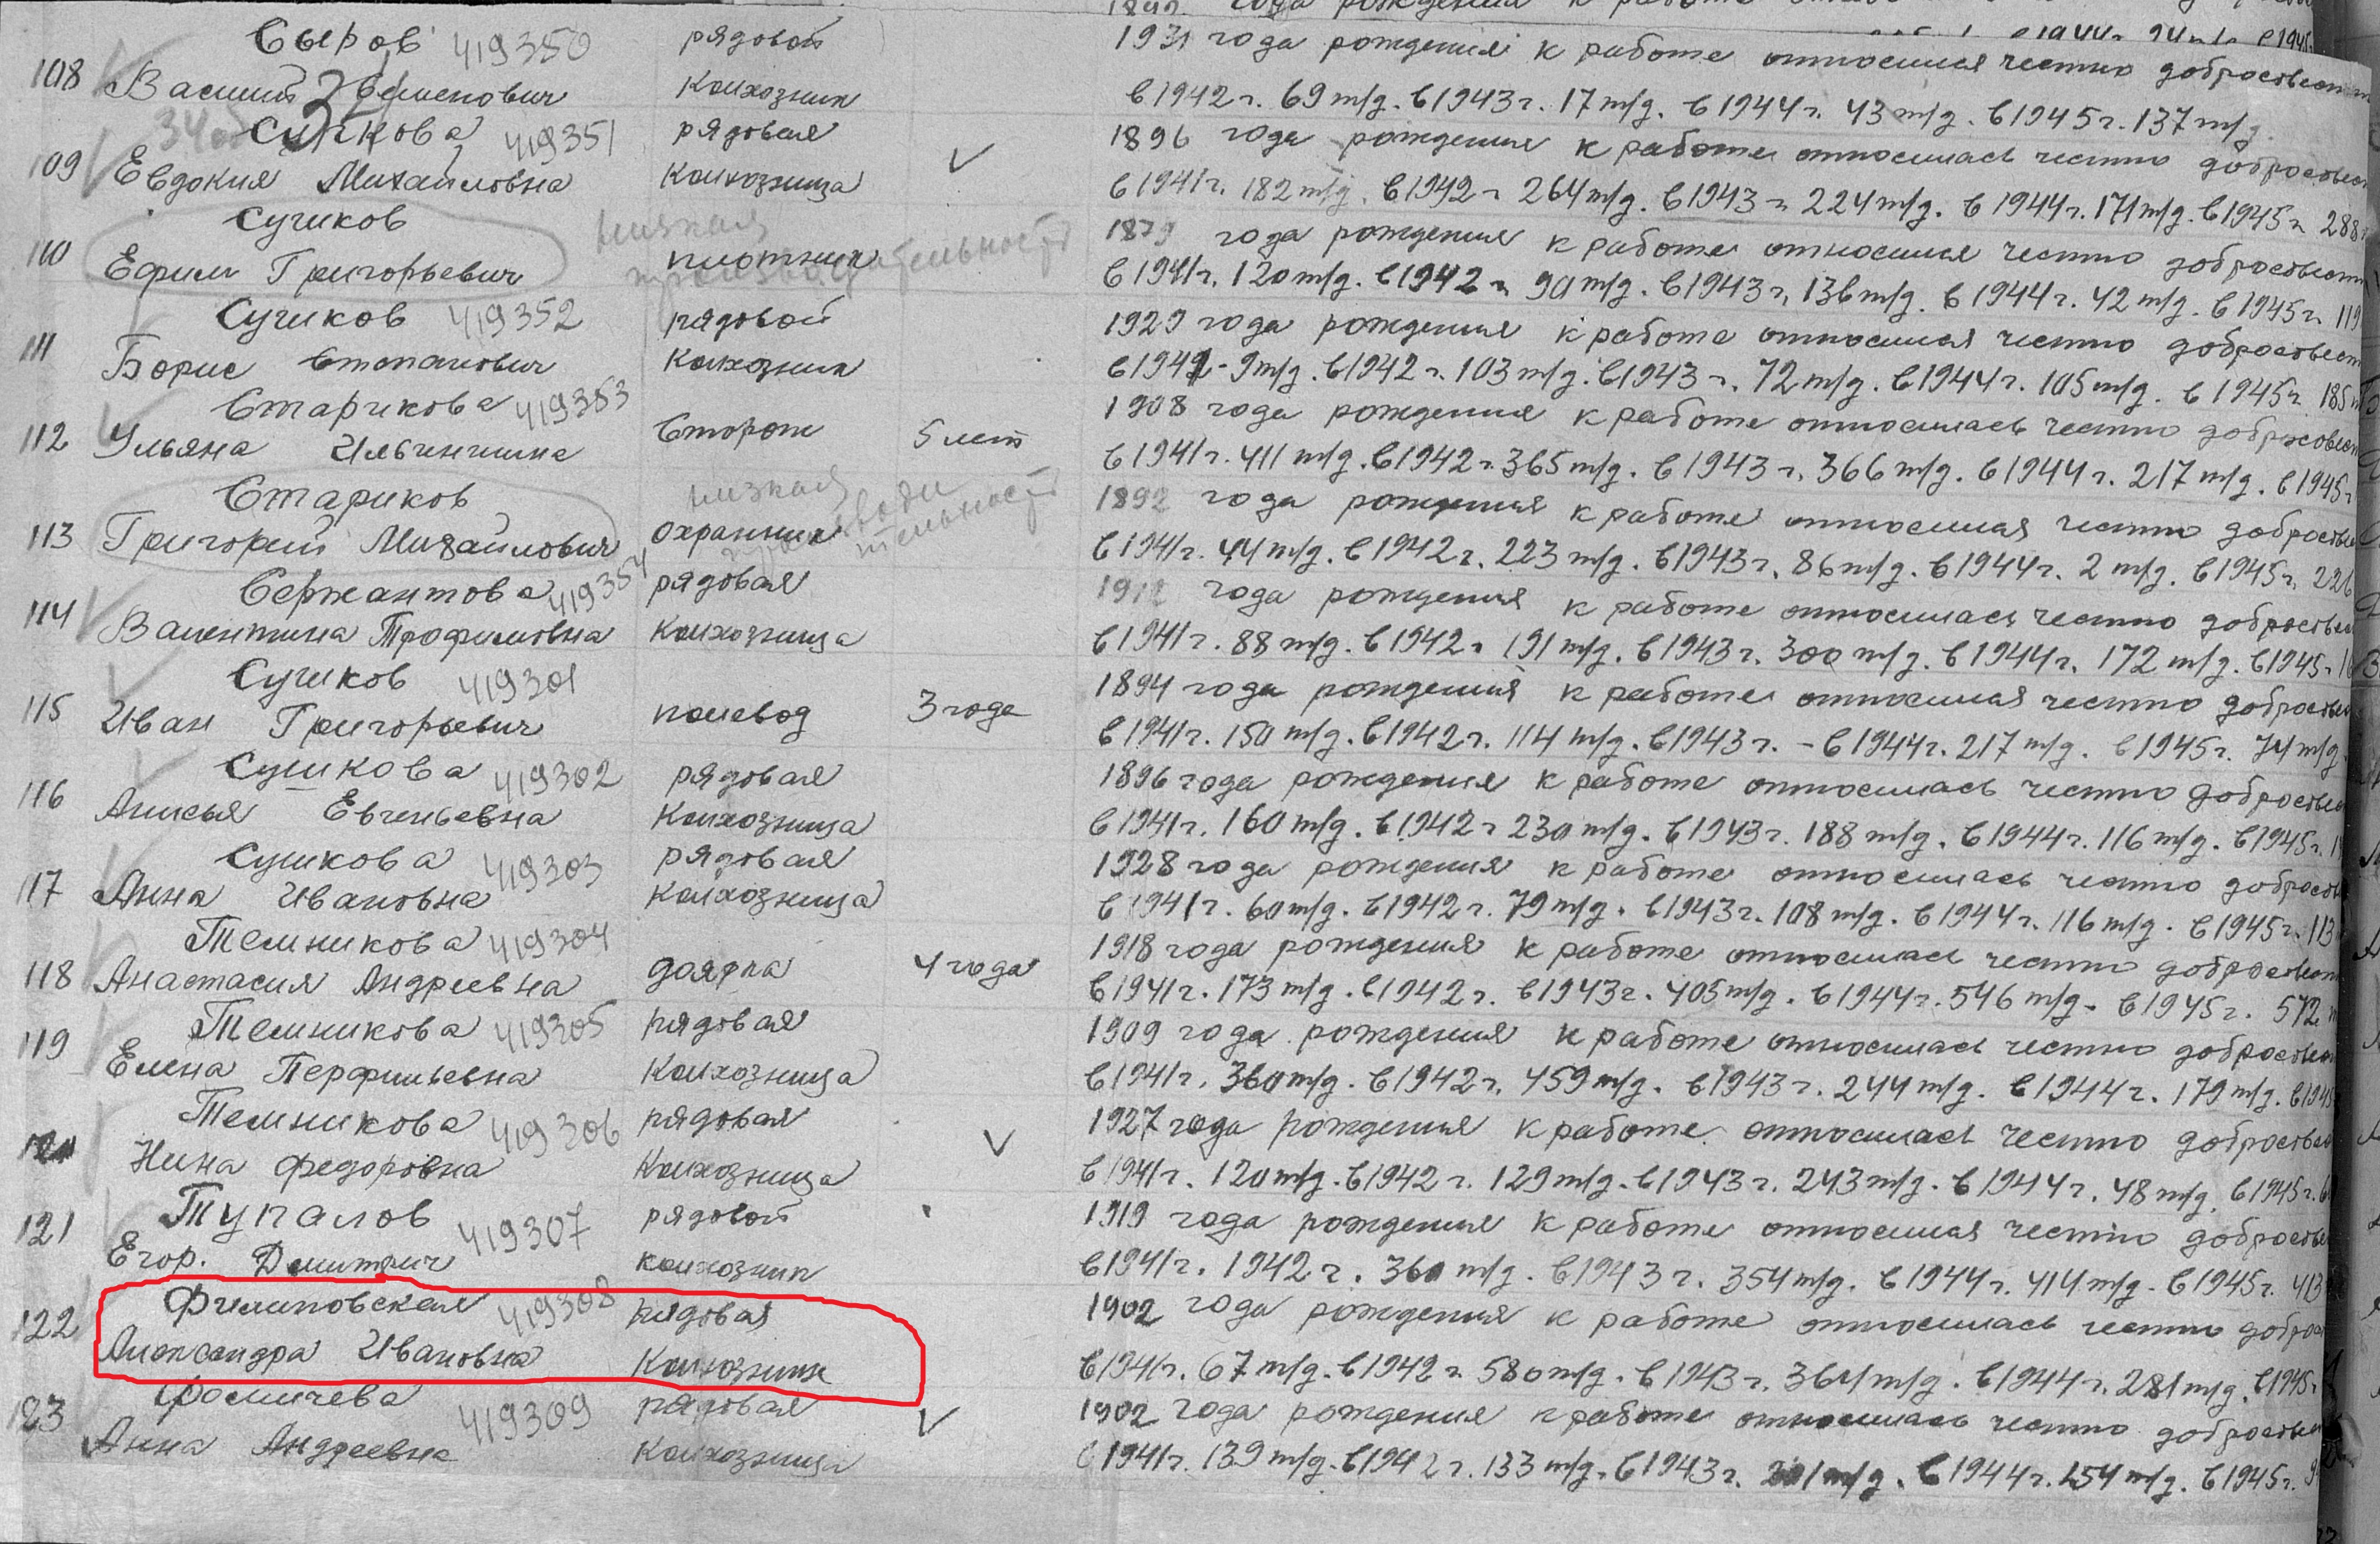 Сыров 419350 рядовой 1931 года рождения к работе относился честно добросовестн
108 Василий Семенович колхозник в 1942 г. 69 т/д. в 1943 г. 17 т/д. в 1944 г. 43 т/д. в 1945 г. 137 т/д.
Сучкова 419351 рядовая 1896 года рождения к работе относилась честно добросовес
109 Евдокия Михайловна колхозница в 1941 г. 182 т/д. в 1942 г 264 т/д. в 1943 г. 224 т/д. в 1944 г. 171 т/д. в 1945 г. 288
Сучков низкая 1879 года рождения к работе относился честно добросовестн
110 Ефим Григорьевич плотник производительность в 1941 г. 120 т/д. в 1942 г. 90 т/д. в 1943 г. 136 т/д. в 1944 г. 42 т/д. в 1945 г. 119
Сучков 419352 рядовой 1929 года рождения к работе относился честно добросовестн
111 Борис Степанович колхозник в 1941 - 9 т/д. в 1942 г. 103 т/д. в 1943 г. 72 т/д. в 1944 г. 105 т/д. в 1945 г. 185
Старикова 419353 1908 года рождения к работе относилась честно добросовест
112 Ульяна Ильинична Сторож 5 лет в 1941 г. 411 т/д. в 1942 г. 365 т/д. в 1943 г. 366 т/д. в 1944 г. 217 т/д. в 1945 г
Стариков низкая 1892 года рождения к работе относился честно добросовес
113 Григорий Михайлович охранник производительность в 1941 г. 44 т/д. в 1942 г. 223 т/д. в 1943 г. 86 т/д. в 1944 г. 2 т/д. в 1945 г. 226
Сержантова 419354 рядовая 1912 года рождения к работе относилась честно добросовес
114 Валентина Трофимовна колхозница в 1941 г. 88 т/д. в 1942 г 191 т/д. в 1943 г. 300 т/д. в 1944 г. 172 т/д. в 1945 г.
Сучков 419301 1894 года рождения к работе относился честно добросовес
115 Иван Григорьевич полевод 3 года в 1941 г. 150 т/д. в 1942 г. 114 т/д. в 1943 г. - в 1944 г. 217 т/д. в 1945 г. 74 т/д
Сушкова 419302 рядовая 1896 года рождения к работе относилась честно добросовес
116 Анисья Евгеньевна колхозница в 1941 г. 160 т/д. в 1942 г 230 т/д. в 1943 г. 188 т/д. в 1944 г. 116 т/д. в 1945 г.
Сушкова 419303 рядовая 1928 года рождения к работе относилась честно добросов
117 Анна Ивановна колхозница в 1941 г. 60 т/д. в 1942 г. 79 т/д. в 1943 г. 108 т/д. в 1944 г. 116 т/д. в 1945 г. 113
Темникова 419304 1918 года рождения к работе относилась честно добросовест
118 Анастасия Андреевна доярка 4 года в 1941 г. 173 т/д. в 1942 г. в 1943 г. 405 т/д. в 1944 г. 546 т/д. в 1945 г. 572
Темникова 419305 рядовая 1909 года рождения к работе относилась честно добросовес
119 Елена Перфильевна колхозница в 1941 г. 360 т/д. в 1942 г. 459 т/д. в 1943 г. 244 т/д. в 1944 г. 179 т/д. в 1945
Темникова 419306 рядовая 1927 года рождения к работе относилась честно добросовес
120 Нина Федоровна колхозница в 1941 г. 120 т/д. в 1942 г. 129 т/д. в 1943 г. 243 т/д. в 1944 г. 48 т/д. в 1945 г.
Тупалов 419307 рядовой 1919 года рождения к работе относился честно добросове
121 Егор. Дмитрич колхозник в 1941 г. 1942 г. 360 т/д. в 1943 г. 354 т/д. в 1944 г. 414 т/д. в 1945 г. 413
Филиповская 419308 рядовая 1902 года рождения к работе относилась честно добросо
122 Александра Ивановна колхозник в 1941 г. 67 т/д. в 1942 г. 580 т/д. в 1943 г. 364 т/д. в 1944 г. 281 т/д. в 1945 г
Фомичева 419309 рядовая 1902 года рождения к работе относилась честно добросовес
123 Анна Андреевна колхозница в 1941 г. 139 т/д. в 1942 г. 133 т/д. в 1943 г. 201 т/д. в 1944 г. 154 т/д. в 1945 г.